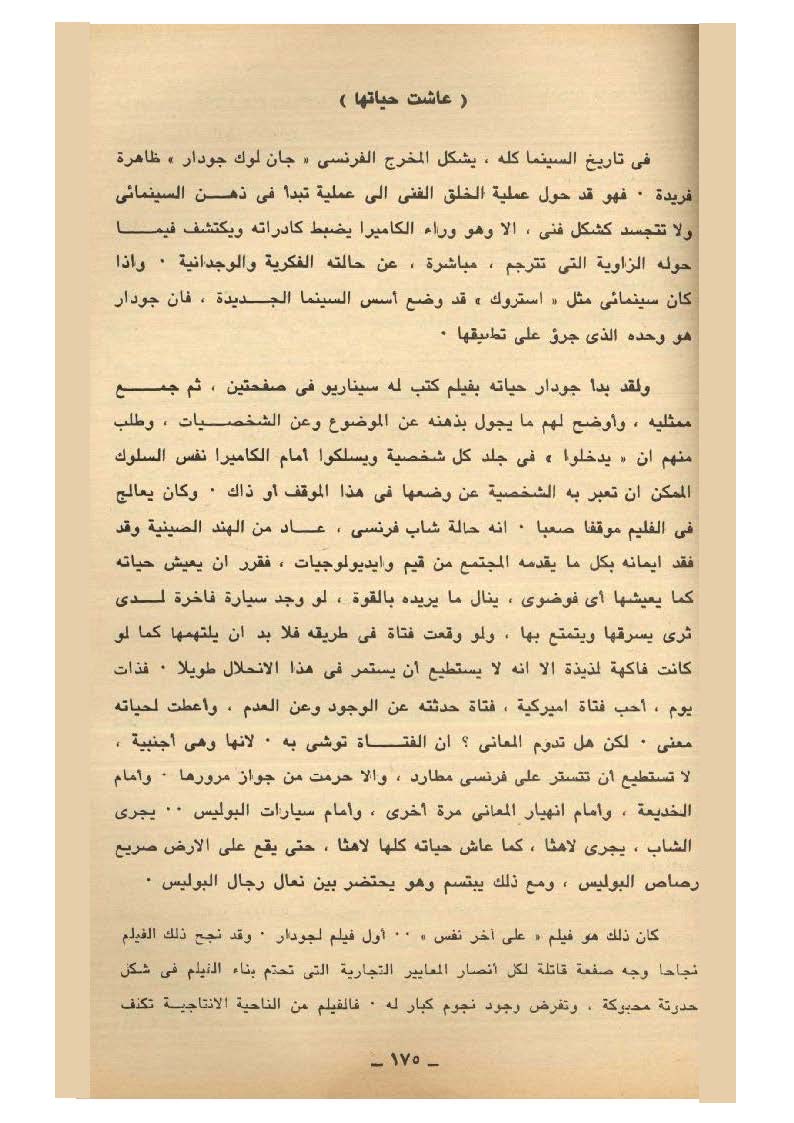 ( عاشت حياتها )
فى تاريخ السينما كله ، يشكل المخرج الفرنسى « جان لوك جودار » ظاهرة
فريدة · فهو قد حول عملية الخلق الفنى الى عملية تبدأ فى ذهن السينمائى
ولا تتجسد كشكل فنى ، الا وهو وراء الكاميرا يضبط كادراته ويكتشف فيما
حوله الزاوية التى تترجم ، مباشرة ، عن حالته الفكرية والوجدانية · واذا
كان سينمائى مثل « استروك » قد وضع أسس السينما الجديدة ، فان جودار
هو وحده الذى جرؤ على تطبيقها ·
ولقد بدأ جودار حياته بفيلم كتب له سيناريو فى صفحتين ، ثم جمع
ممثليه ، وأوضح لهم ما يجول بذهنه عن الموضوع وعن الشخصيات ، وطلب
منهم ان « يدخلوا » فى جلد كل شخصية ويسلكوا أمام الكاميرا نفس السلوك
الممكن ان تعبر به الشخصية عن وضعها فى هذا الموقف أو ذاك · وكان يعالج
فى الفليم موقفا صعبا · انه حالة شاب فرنسى ، عاد من الهند الصينية وقد
فقد ايمانه بكل ما يقدمه المجتمع من قيم وايديولوجيات ، فقرر ان يعيش حياته
كما يعيشها أى فوضوى ، ينال ما يريده بالقوة ، لو وجد سيارة فاخرة لدى
ثرى يسرقها ويتمتع بها ، ولو وقعت فتاة فى طريقه فلا بد ان يلتهمها كما لو
كانت فاكهة لذيذة الا انه لا يستطيع أن يستمر فى هذا الانحلال طويلا · فذات
يوم ، أحب فتاة اميركية ، فتاة حدثته عن الوجود وعن العدم ، وأعطت لحياته
معنى · لكن هل تدوم المعانى ؟ ان الفتاة توشى به · لانها وهى أجنبية ،
لا تستطيع أن تتستر على فرنسى مطارد ، والا حرمت من جواز مرورها · وأمام
الخديعة ، وأمام انهيار المعانى مرة أخرى ، وأمام سيارات البوليس ·· يجرى
الشاب ، يجرى لاهثا ، كما عاش حياته كلها لاهثا ، حتى يقع على الارض صريع
رصاص البوليس ، ومع ذلك يبتسم وهو يحتضر بين نعال رجال البوليس ·
كان ذلك هو فيلم « على آخر نفس » ·· أول فيلم لجودار · وقد نجح ذلك الفيلم
نجاحا وجه صفعة قاتلة لكل أنصار المعايير التجارية التى تحتم بناء الفيلم فى شكل
حدوتة محبوكة ، وتفرض وجود نجوم كبار له · فالفيلم من الناحية الانتاجية تكلف
ـ ١٧٥ ـ